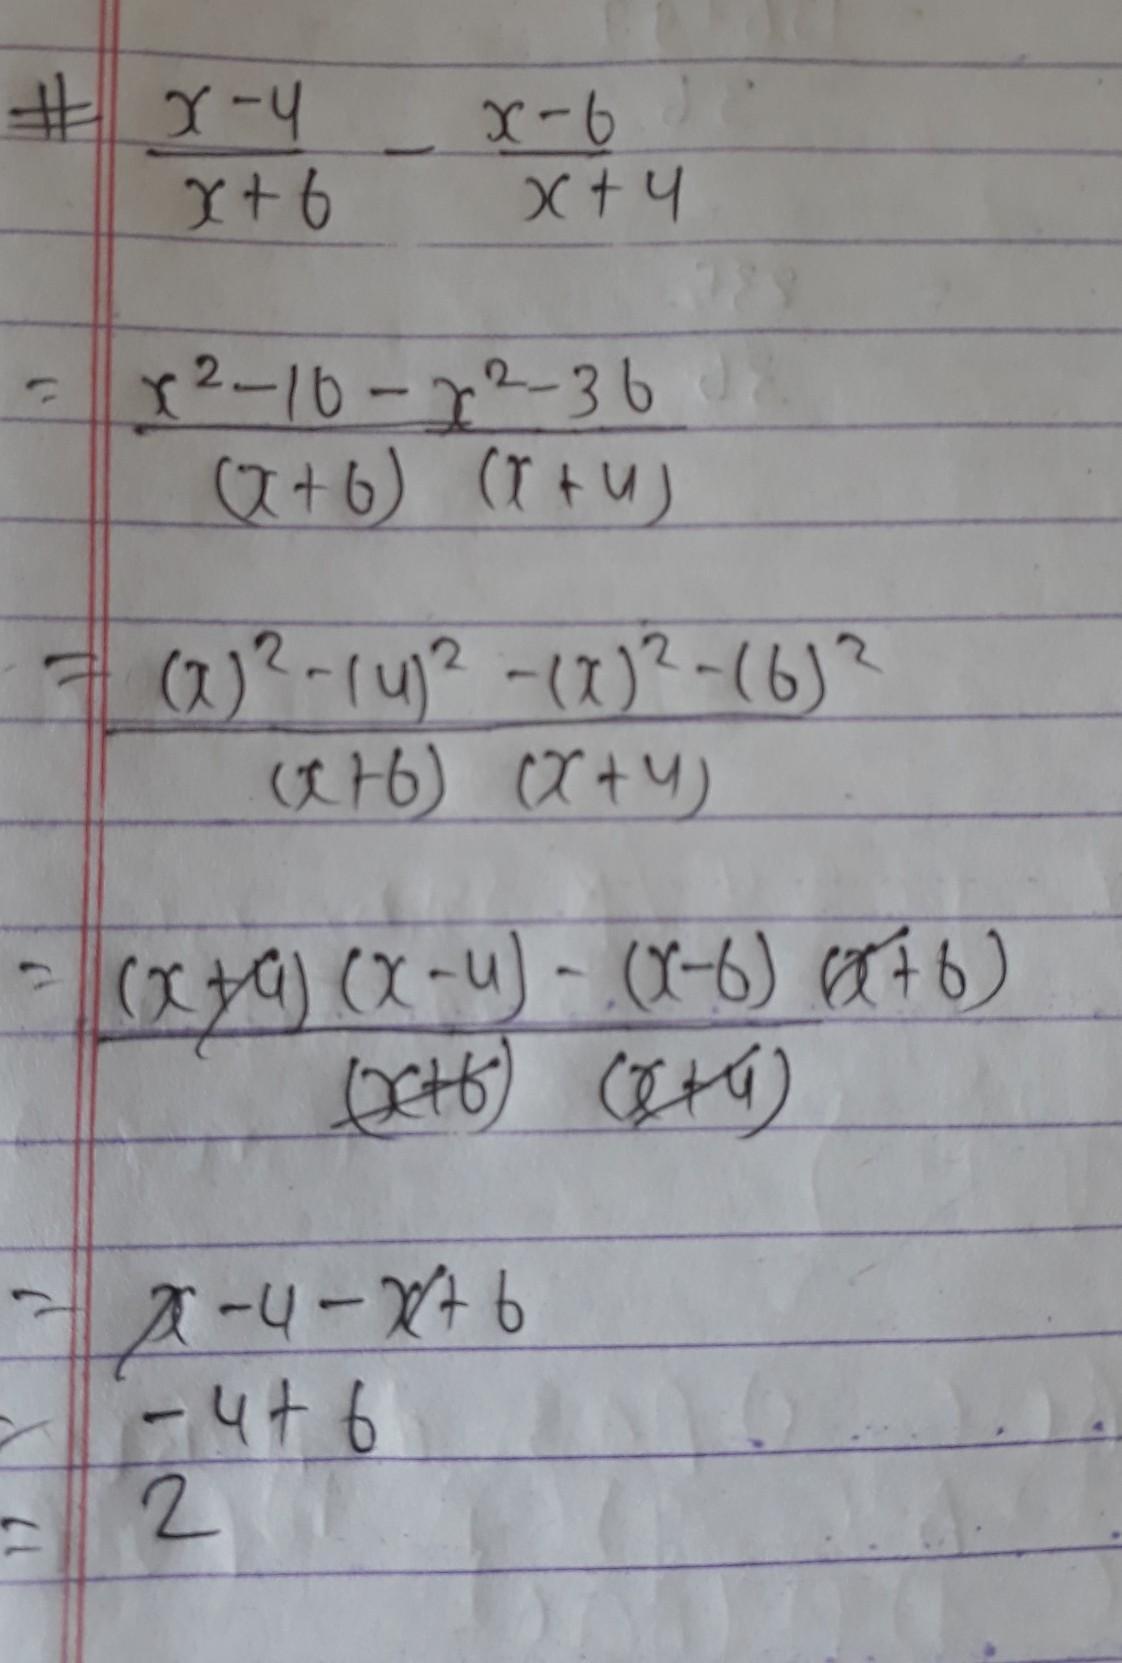 # x-4 / x+6 - x-6 / x+4
= x²-16-x²-36
(x+6) (x+4)
= (x)²-(4)² -(x)²-(6)²
(x+6) (x+4)
= (x+4)(x-4)-(x-6)(x+6)
(x+6) (x+4)
= x-4-x+6
-4+6
= 2